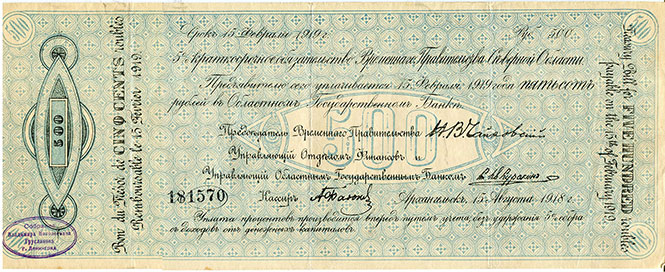 500
500
500
500
Bon du Trésor de CINQ CENTS roubles
Remboursable le 15 Février 1919.
Срокъ 15 Февраля 1919 г.
Руб. 500.
5% краткосрочное обязательство Временнаго Правительства Сѣверной Области.
Предъявителю сего уплачивается 15 Февраля 1919 года пятьсотъ
рублей въ Областномъ Государственномъ Банкѣ.
500
Предсѣдатель Временнаго Правительства Н.В.Чайковский
Управляющій Отдѣломъ Финансовъ и
Управляющій Областнымъ Государственнымъ Банкомъ
181570
Кассиръ
Архангельскъ, 15 Августа 1918 г.
Уплата процентовъ производится впередъ путемъ учета, безъ удержанія 5% сбора
съ доходовъ отъ денежныхъ капиталовъ.
Treasury Bill for FIVE HUNDRED roubles
payable on the 15th of February 1919.
Собрание
Владимира Николаевича
г. Ленинград